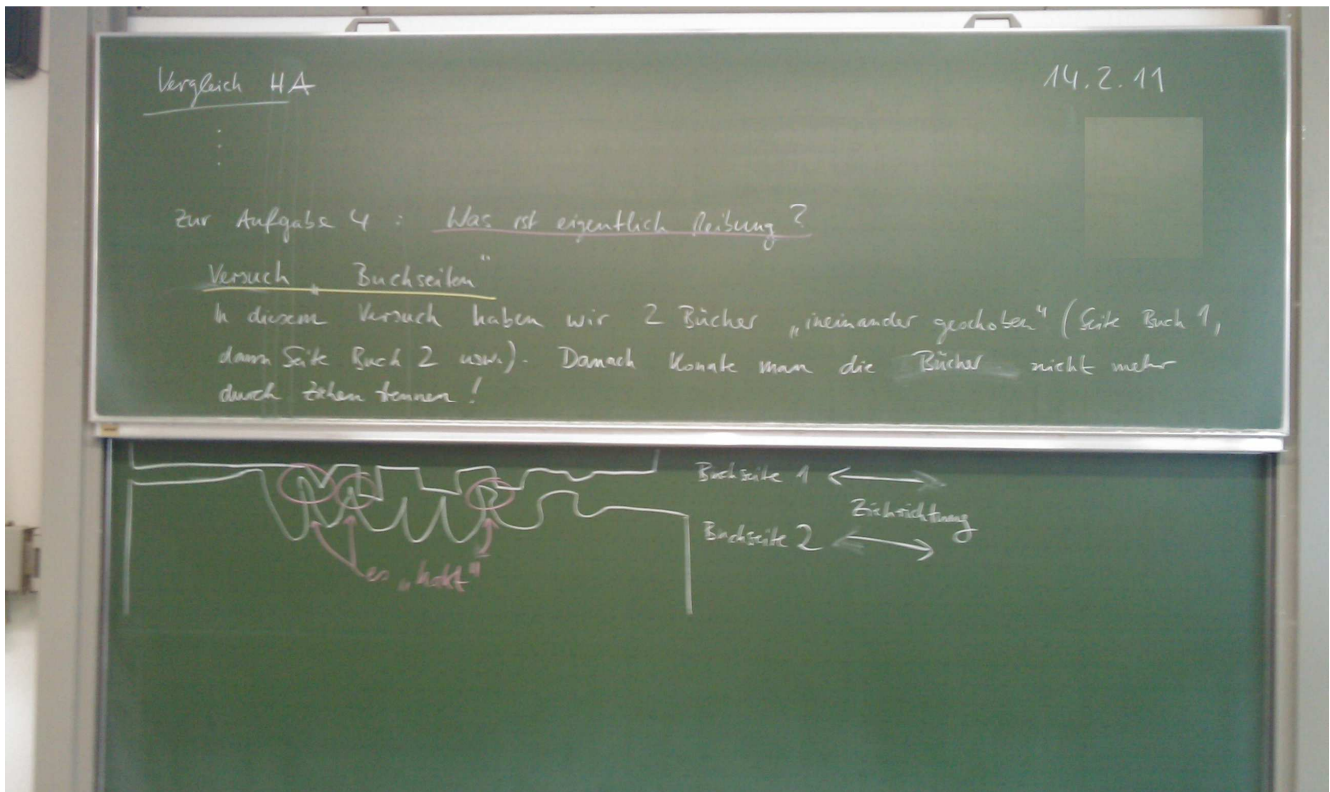 Vergleich HA
14.2.11
Zur Aufgabe 4 : Was ist eigentlich Reibung?
Versuch „Buchseiten“
In diesem Versuch haben wir 2 Bücher „ineinander geschoben“ (Seite Buch 1,
dann Seite Buch 2 usw.). Danach konnte man die Bücher nicht mehr
durch ziehen trennen!
Buchseite 1
Ziehrichtung
Buchseite 2
es „hakt“